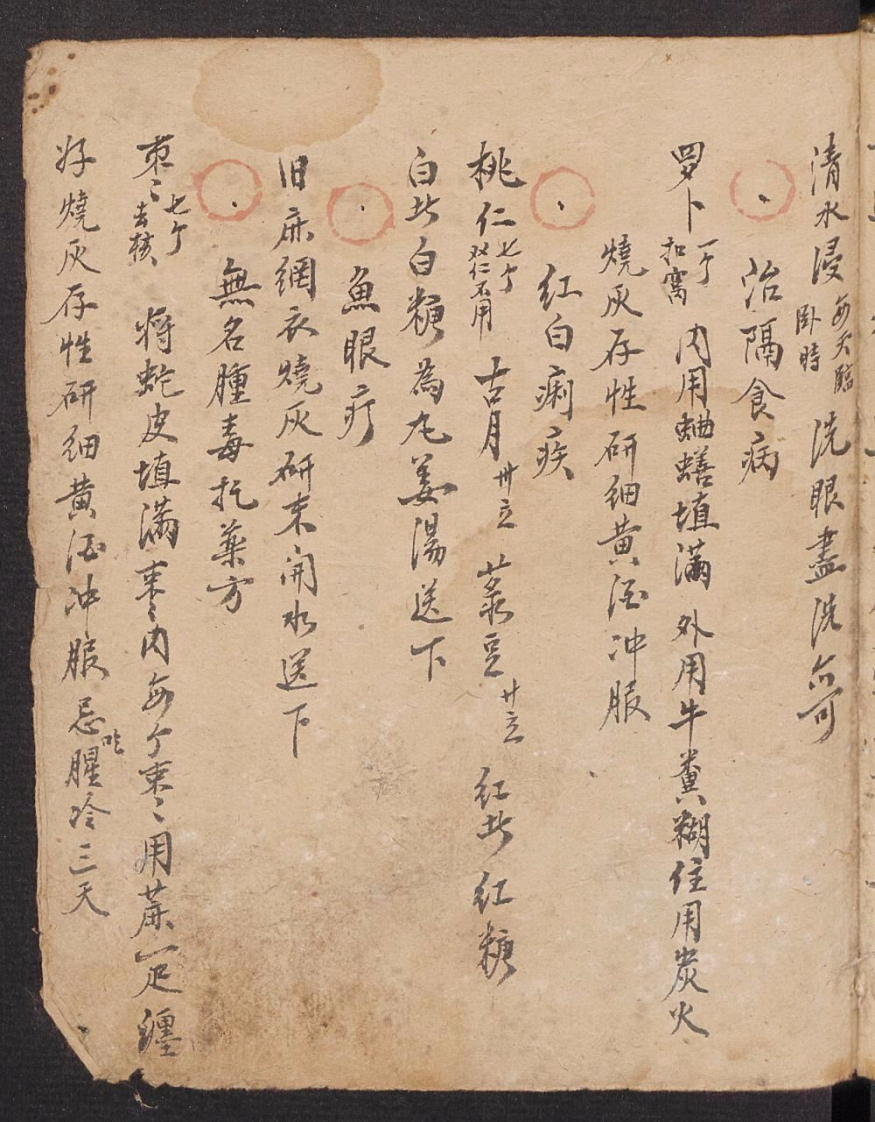 清水浸每天臨卧時洗眼盡洗亦可
治隔食病
罗卜一个扣窩內用蛐蟮填滿外用牛糞糊住用炭火
燒灰存性研細黄酒冲服
红白痢疾
桃仁七个双仁不用古月卅立菉豆廿立红者红糖
白者白糖為丸姜湯送下
魚眼疔
旧麻網衣燒灰研末開水送下
無名腫毒托藥方
枣〻七个去核將蛇皮填滿枣〻內每个枣〻用蔴一疋纏
好燒灰存性研細黄酒冲服忌吃腥冷三天